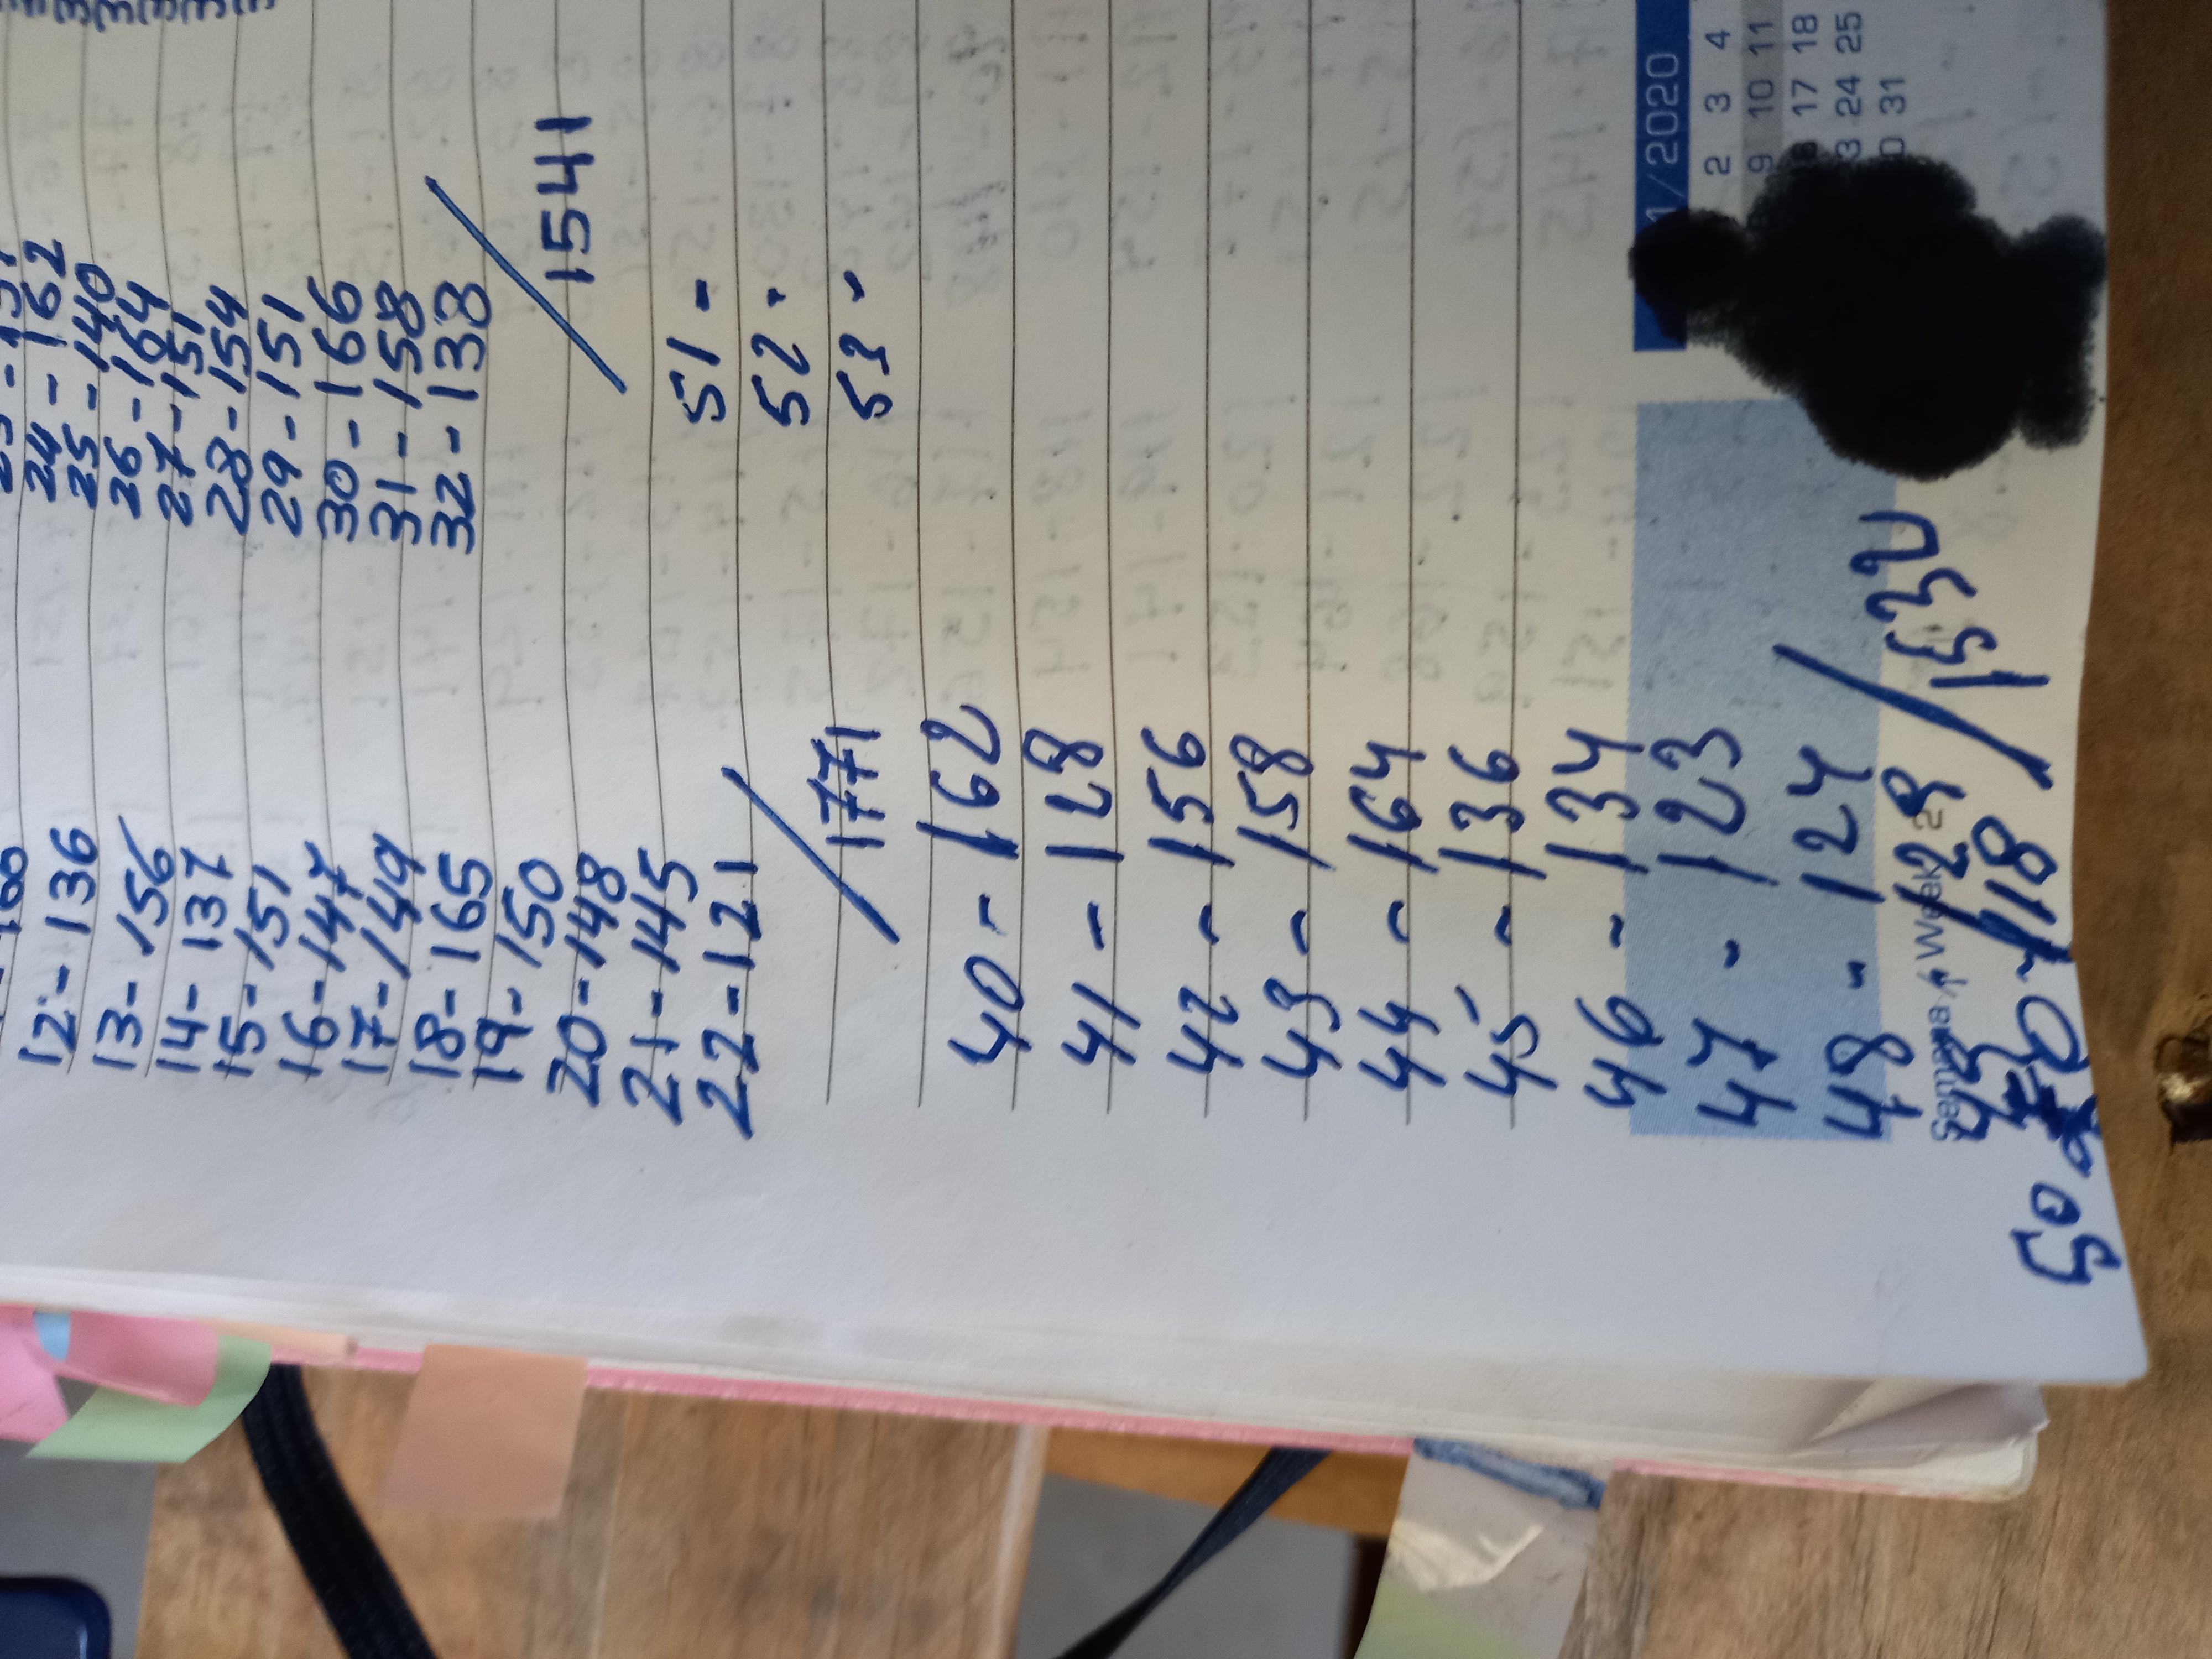 12 - 136
13 - 156
14 - 137
15 - 151
16 - 147
17 - 149
18 - 165
19 - 150
20 - 148
21 - 145
22 - 121
/1771
40 - 162
41 - 128
42 - 156
43 - 158
44 - 164
45 - 136
46 - 134
47 - 123
48 - 124
49 128
50 118
24 - 162
25 - 140
26 - 164
27 - 151
28 - 154
29 - 151
30 - 166
31 - 158
32 - 138
/1541
51 -
52 -
53 -
1/2020
2 3 4
9 10 11
17 18
3 24 25
0 31
Semana / Week